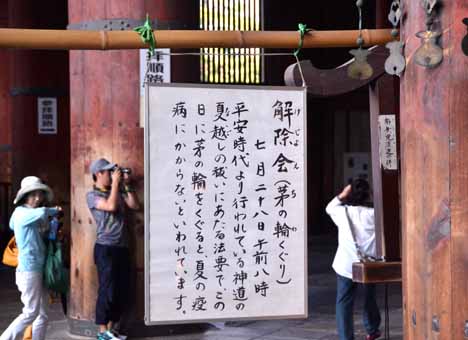 解除会(茅の輪くぐり)
げじょえ ち わ
七月二十八日午前八時
平安時代より行われている神道の
夏越しの祓いにあたる法要で、この
日に茅の輪をくぐると、夏の疫
病にかからないといわれています。
拝順路
順路